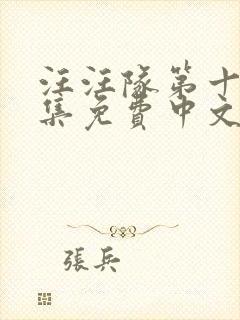 汪汪隊第十
集免費中文
張兵